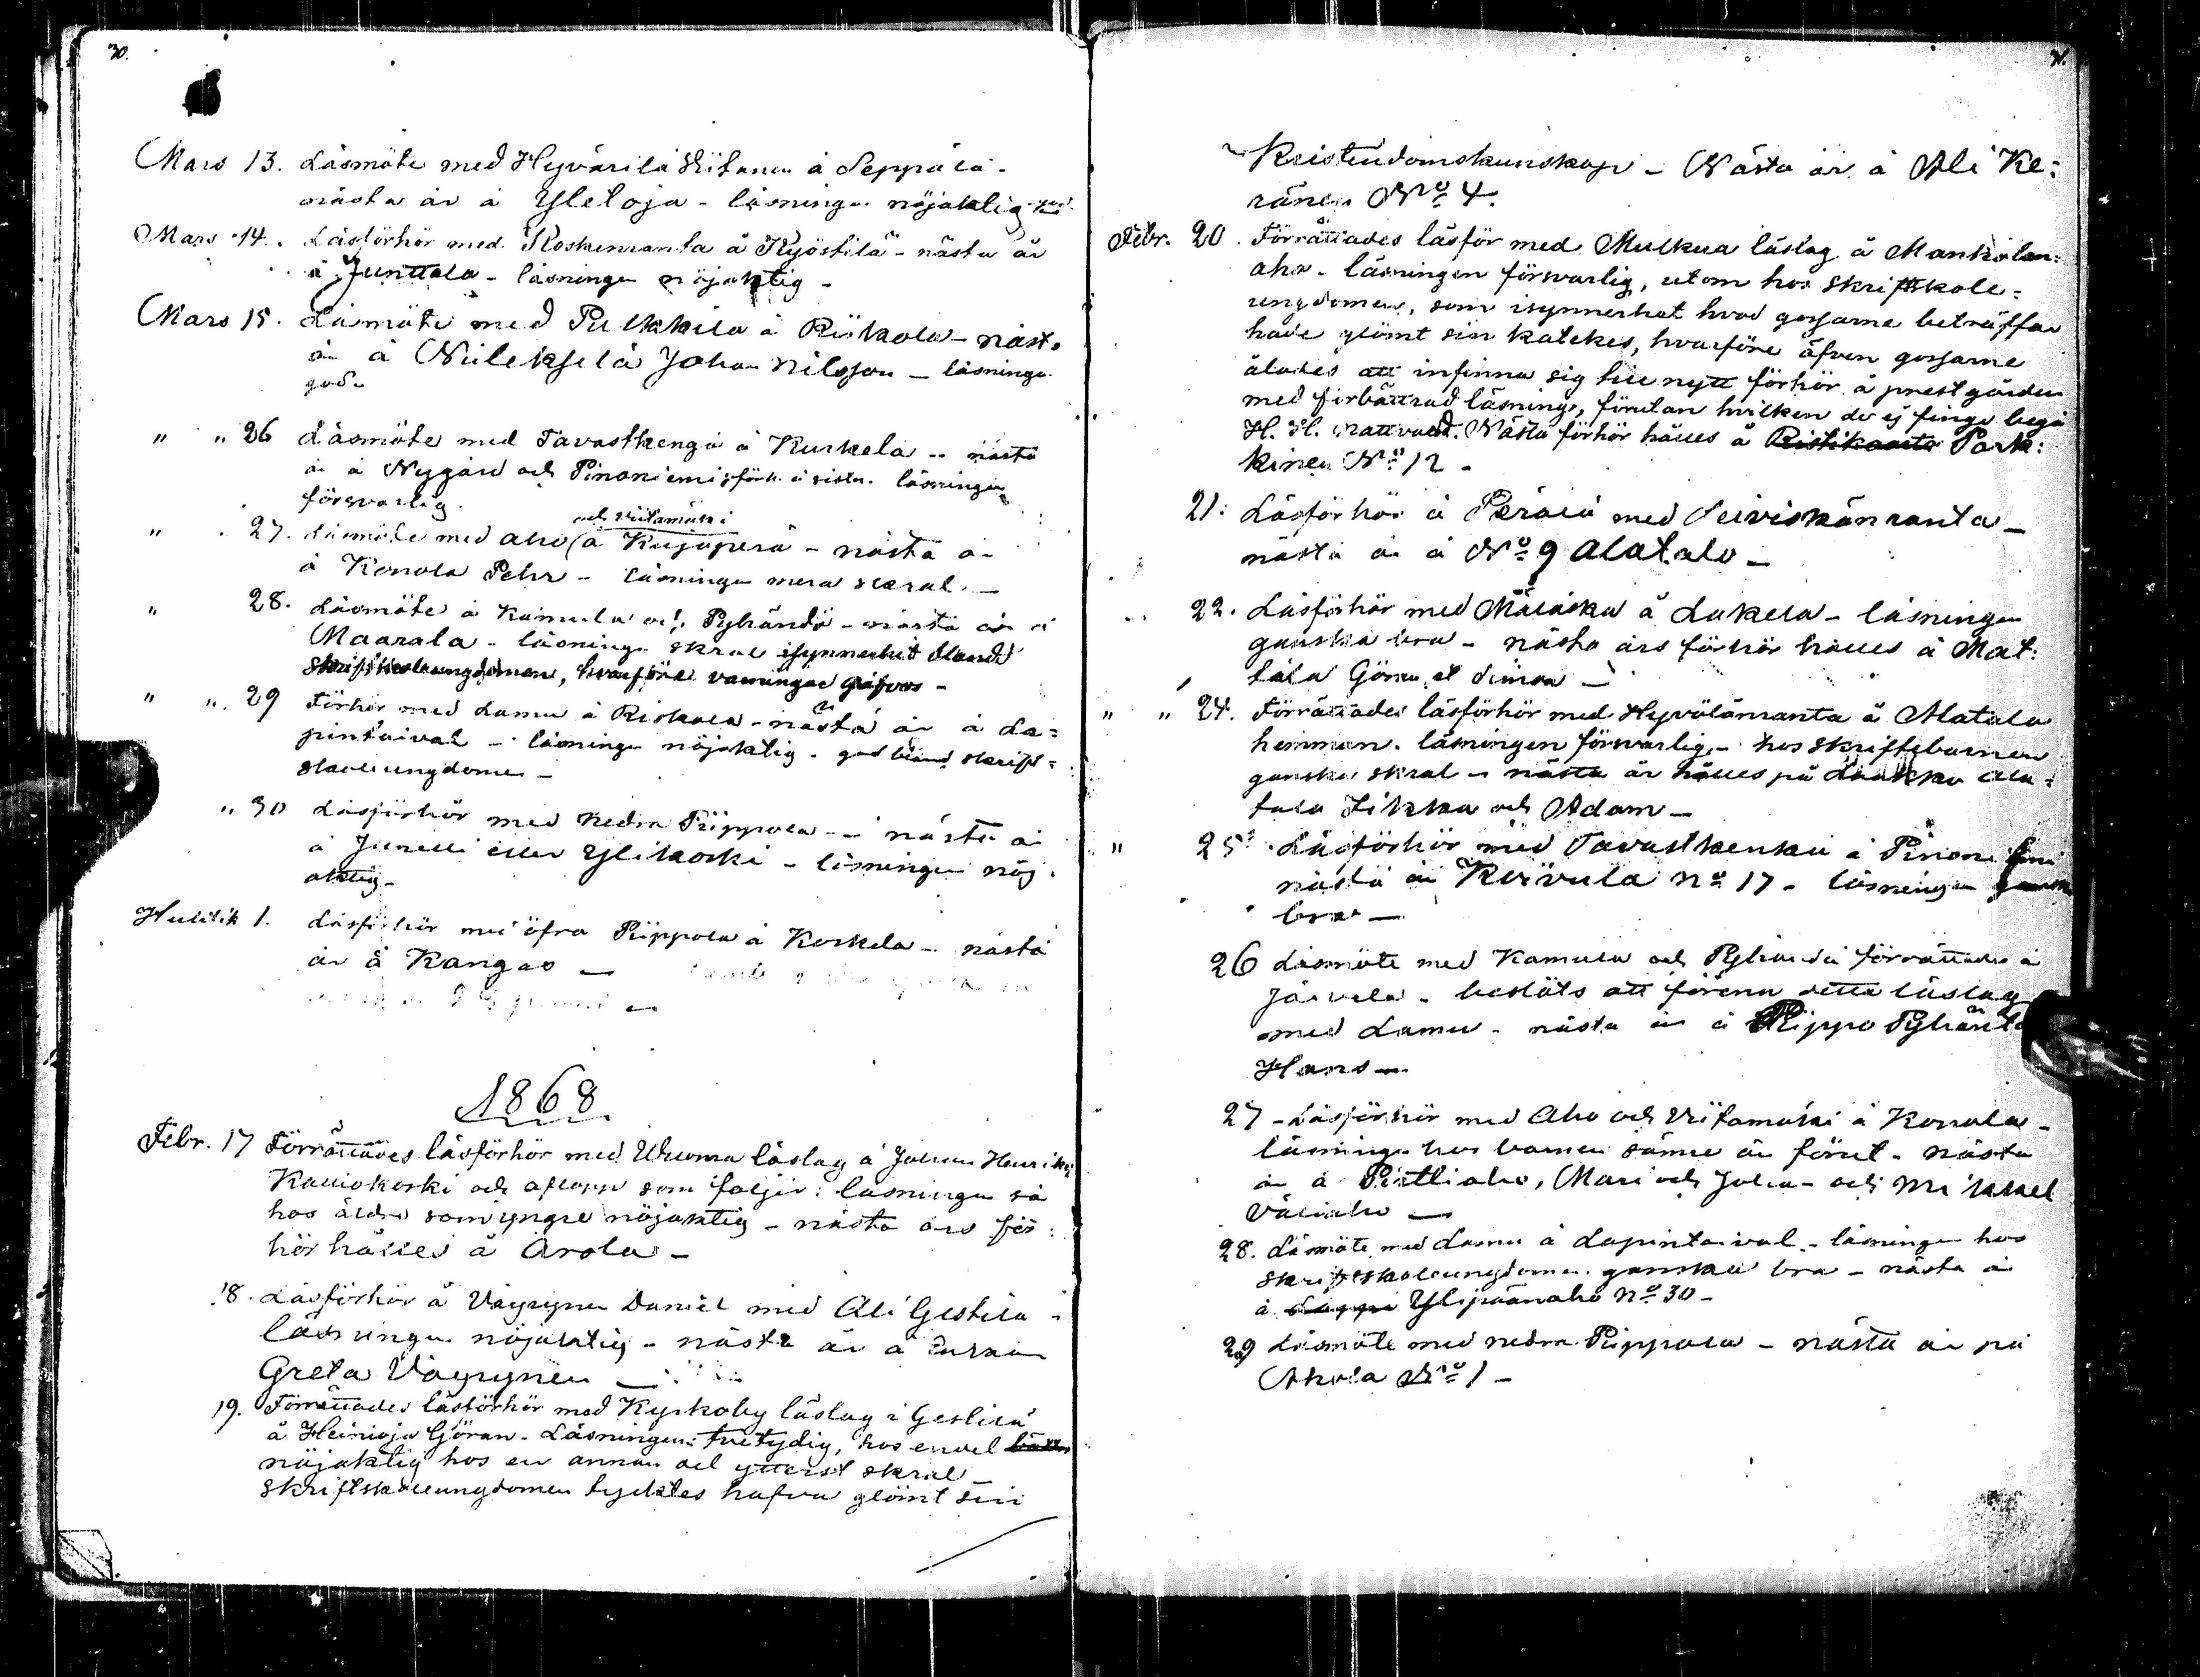 30.
Mars 13. Läsmöte med Hyvärilä Riitanen å Seppälä -
nästa år å Yletoja - läsningen nöjaktig
Mars 14. Läsförhör med Koskenranta å Kyöstilä - nästa år
å Junttala - läsningen nöjaktig -
Mars 15. Läsmöte med Pulkkila å Riikola - nästa
år å Niileksela Johan Nilsson - läsningen
goda
" " 26 Läsmöte med Tavastkenga å Kurkela - nästa
år å Nygård och Pinoniemi förh. å sista. läsningen
försvarlig.
och Viitamäki
" 27. Läsmöte med Aho (å Kujaperä - nästa år
å Konola Pehr - läsningen mera skral. -
" 28. Läsmöte å Kamula och Pyhändö - nästa år å
Maarala - läsningen skral isynnerhet bland
skriftskoleungdomen, hvarföre varningar gåfvos -
" " 29 Förhör med Lamu å Riskala - nästa år å La=
pintaival - läsningen nöjaktig - god bland skrift=
skoleungdomen -
" 30 Läsförhör med Nedra Piippola - nästa år
å Junelli eller Ylikoski - läsningen nöj
aktig -
Huhtik 1. Läsförhör med öfra Piippola å Korkela - nästa
år å Kangas -
1868.
Febr. 17 Förrättades läsförhör med Wuorna läslag å Johan Henriks
Kauiokoski och aflopp som följer: läsningen så
hos äldre som yngre nöjaktig - nästa års för=
hör hålles å Arola -
18. Läsförhör å Väyrynen Daniel med Ali Gestilä -
läsningen nöjaktig - nästa år å Enkan
Greta Väyrynen -
19. Förrättades läsförhör med Kyrkoby läslag i Gestilä
å Heinioja Göran. Läsningen: tvetydig, hos en del bättre
nöjaktig hos en annan del ytterst skral -
skriftskoleungdomen tycktes hafva glömt sin
31.
Kristendomskunskap - Nästa år å Ali Ke=
ränen No 4.
Febr. 20. Förrättades läsför med Mulkua läslag å Mankilan=
aho - läsningen försvarlig, utom hos skriftskole=
ungdomen, som isynnerhet hvad gossarne beträffar
hade glömt sin katekes, hvarföre äfven gossarne
ålades att infinna sig till nytt förhör å prestgården
med förbättrad läsning, förutan hvilken de ej finge begå
H. H. nattvard. Nästa förhör hålles å Ristikaarto Park=
kinen No 12 -
21: Läsförhör å Perälä med Leiviskänranta -
nästa år å No 9 Alatalo -
22. Läsförhör med Mäläskä å Lakela - läsningen
ganska bra - nästa års förhör hålles å Mat=
tala Göran et Simon -
" " 24. Förrättades läsförhör med Hyvölänranta å Matala
hemman. läsningen försvarlig - hos skriftebarnen
ganska skral - nästa år hålles på Laakko Ala=
talo Jikka och Adam -
" 25. Läsförhör med Tavastkenkä å Pinoniemi
nästa år Koivula no 17 - läsningen ganska
bra -
26 Läsmöte med Kamula och Pyhändö förrättades å
Järvelä - beslöts att förena detta läslag
med Lamu - nästa år å Piippo Pyhäntö
Hans -
27 - Läsförhör med Aho och Viitamäki å Konola -
läsningen hos barnen sämre än förut - nästa
år å Pirttiaho, Mari och Johan och Mikkel
Väliaho -
28. Läsmöte med Lamu å Lapintaival - läsningen hos
skriftskoleungdomen ganska bra - nästa år
å Lappi Ylipäänaho No 30 -
29 Läsmöte med nedra Piippola - nästa år på
Ahola No 1 -